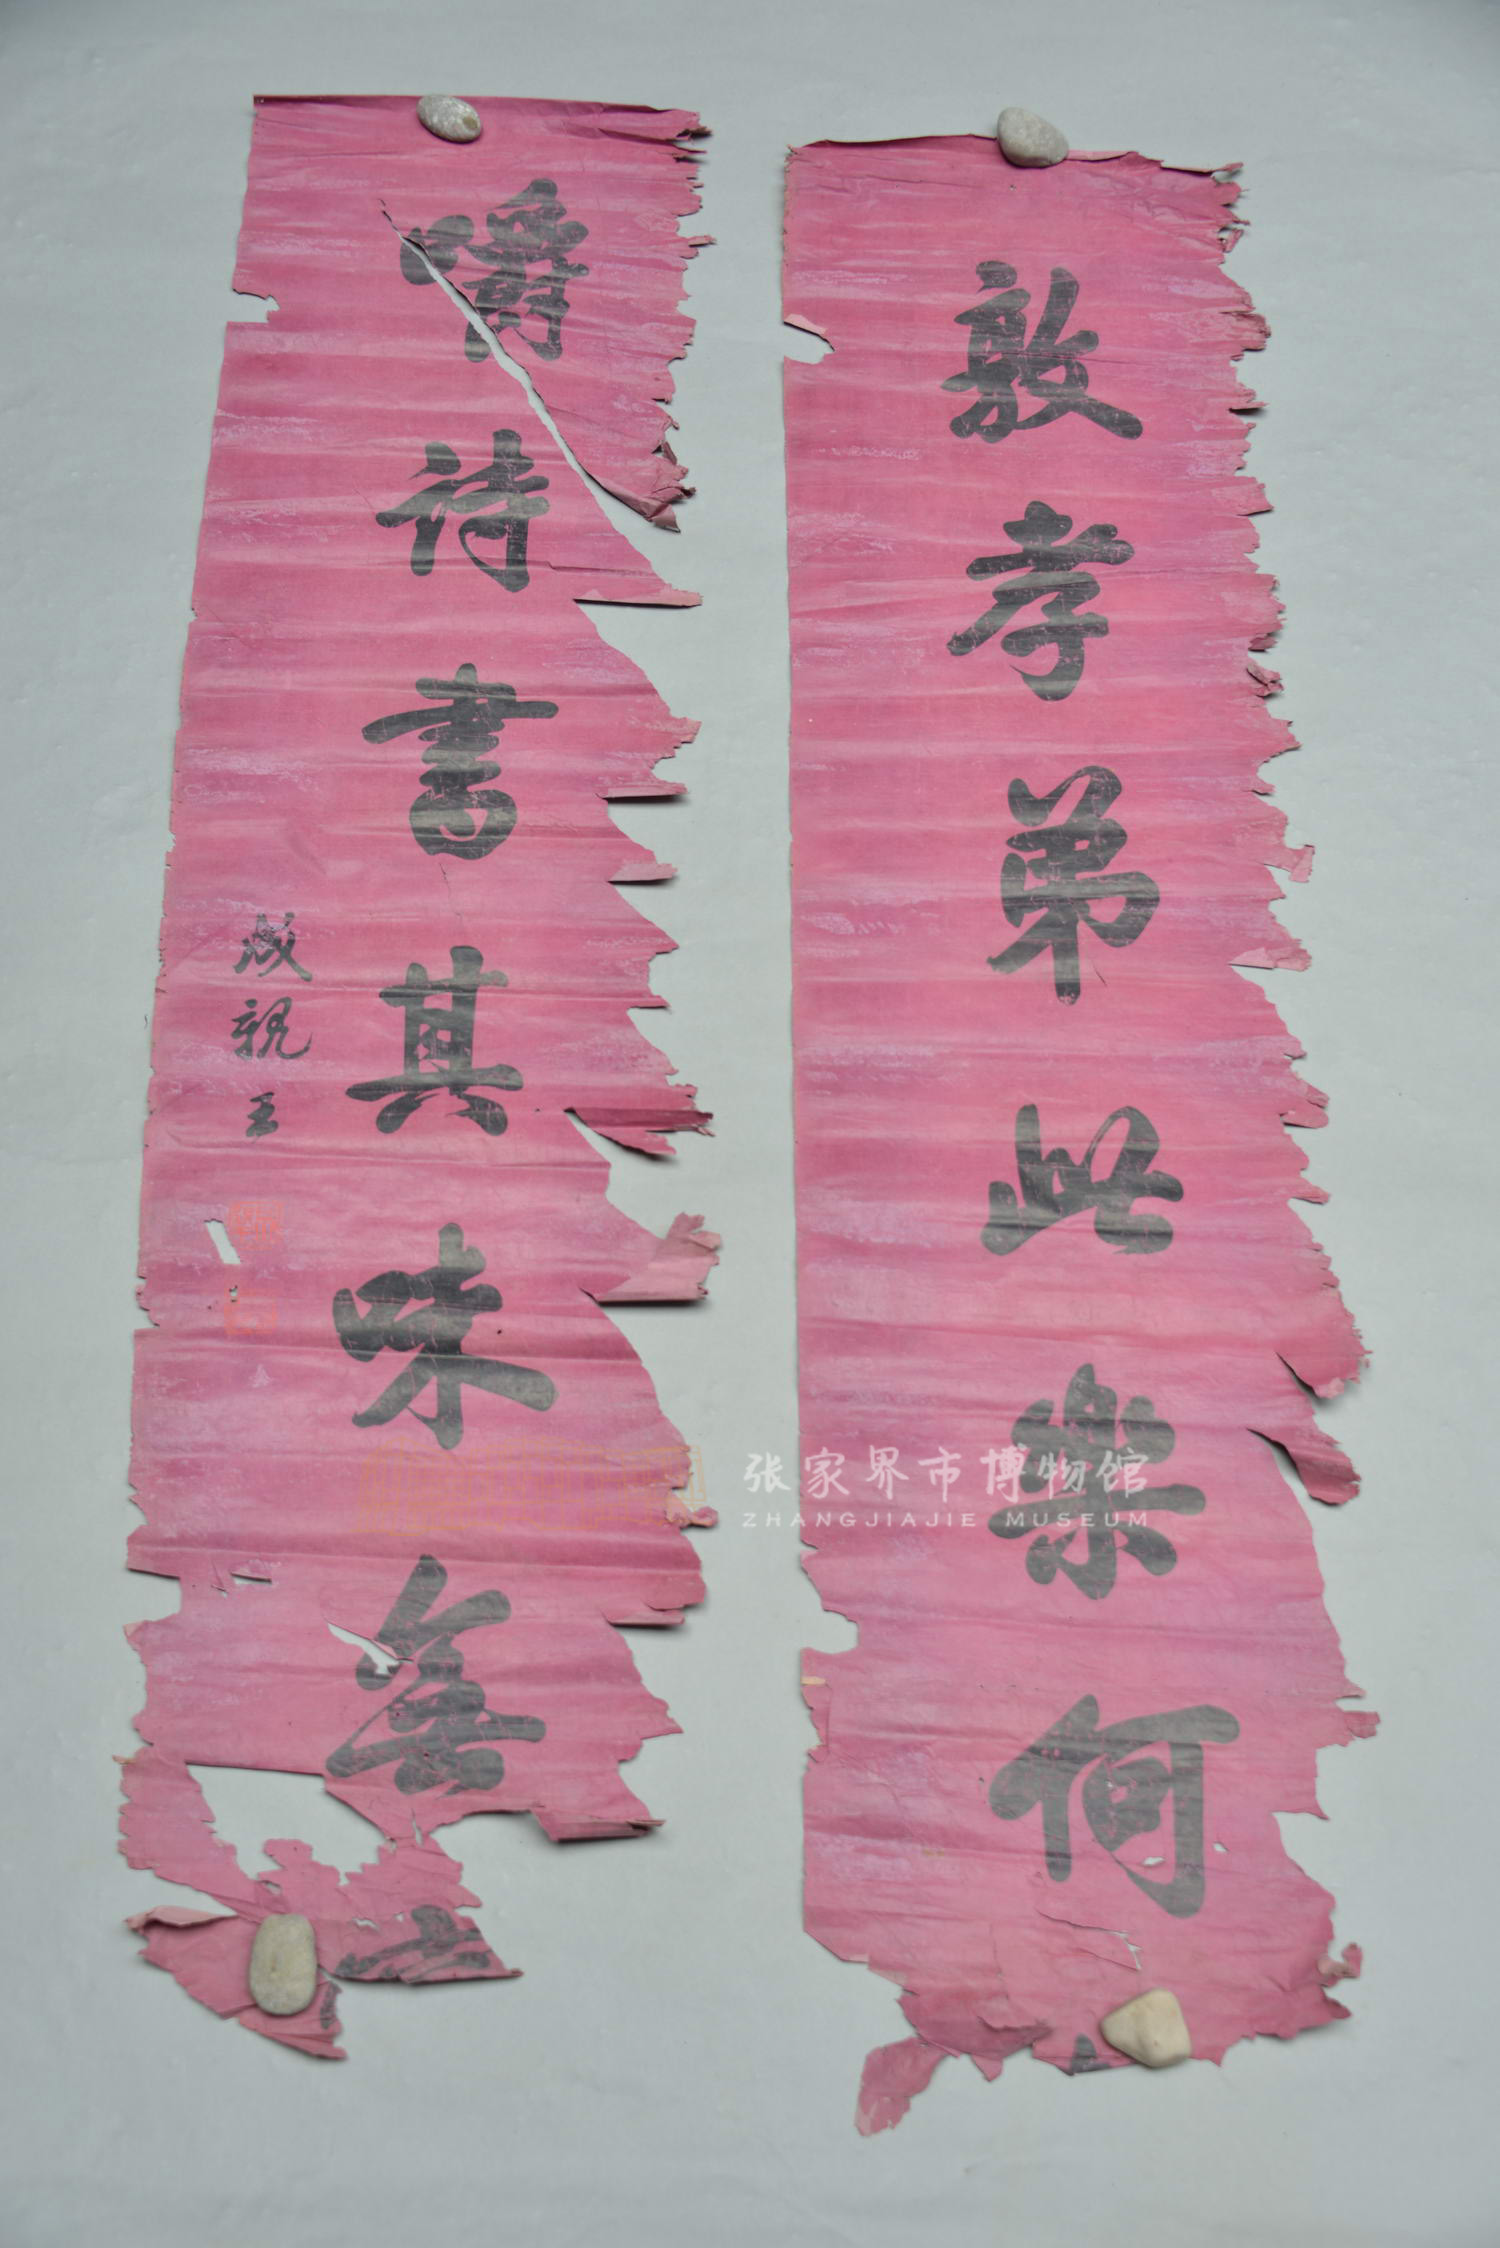 敦孝弟此樂何
嚼詩書其味無
成親王
张家界市博物馆
ZHANGJIAJIE MUSEUM